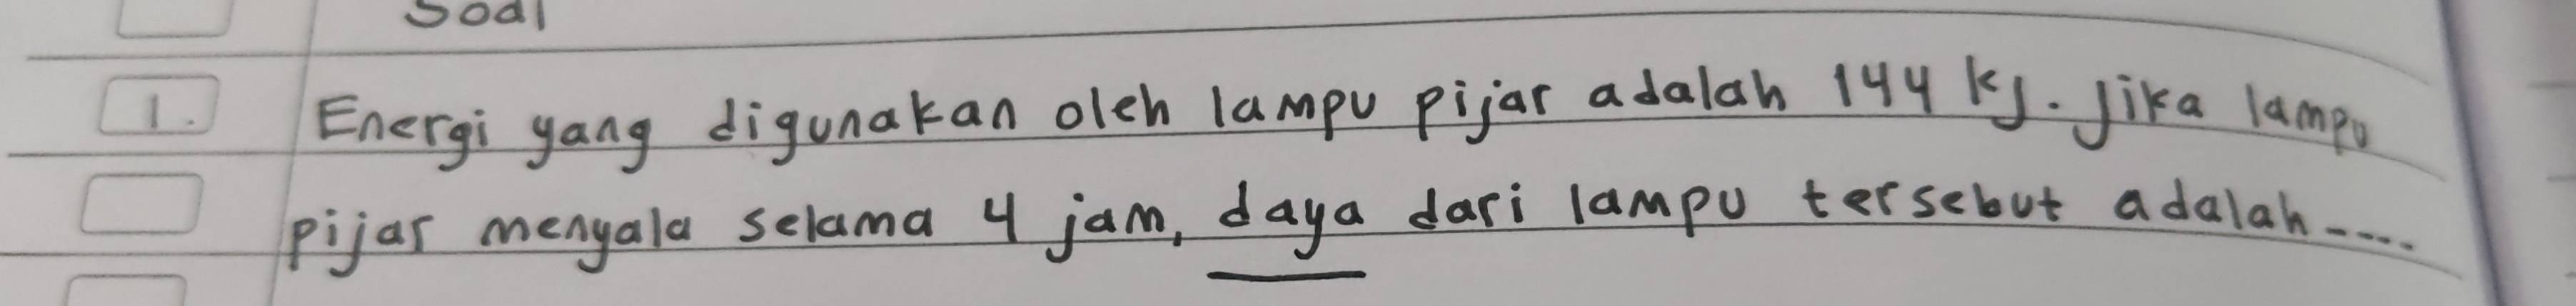 Soal
1. Energi yang digunakan oleh lampu pijar adalah 144 kJ. Jika lampu
pijar menyala selama 4 jam, daya dari lampu tersebut adalah ....